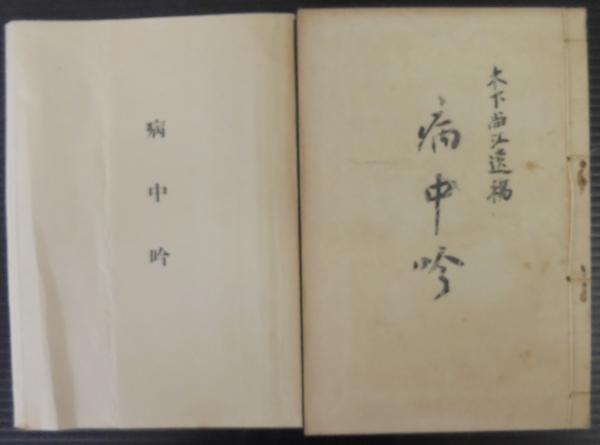 病中吟
木下尚江遺稿
病中吟